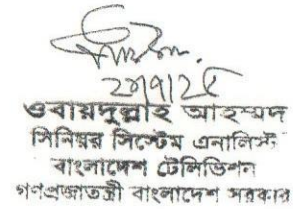 ওবায়দুল্লাহ আহম্মদ
সিনিয়র সিস্টেম এনালিস্ট
বাংলাদেশ টেলিভিশন
গণপ্রজাতন্ত্রী বাংলাদেশ সরকার